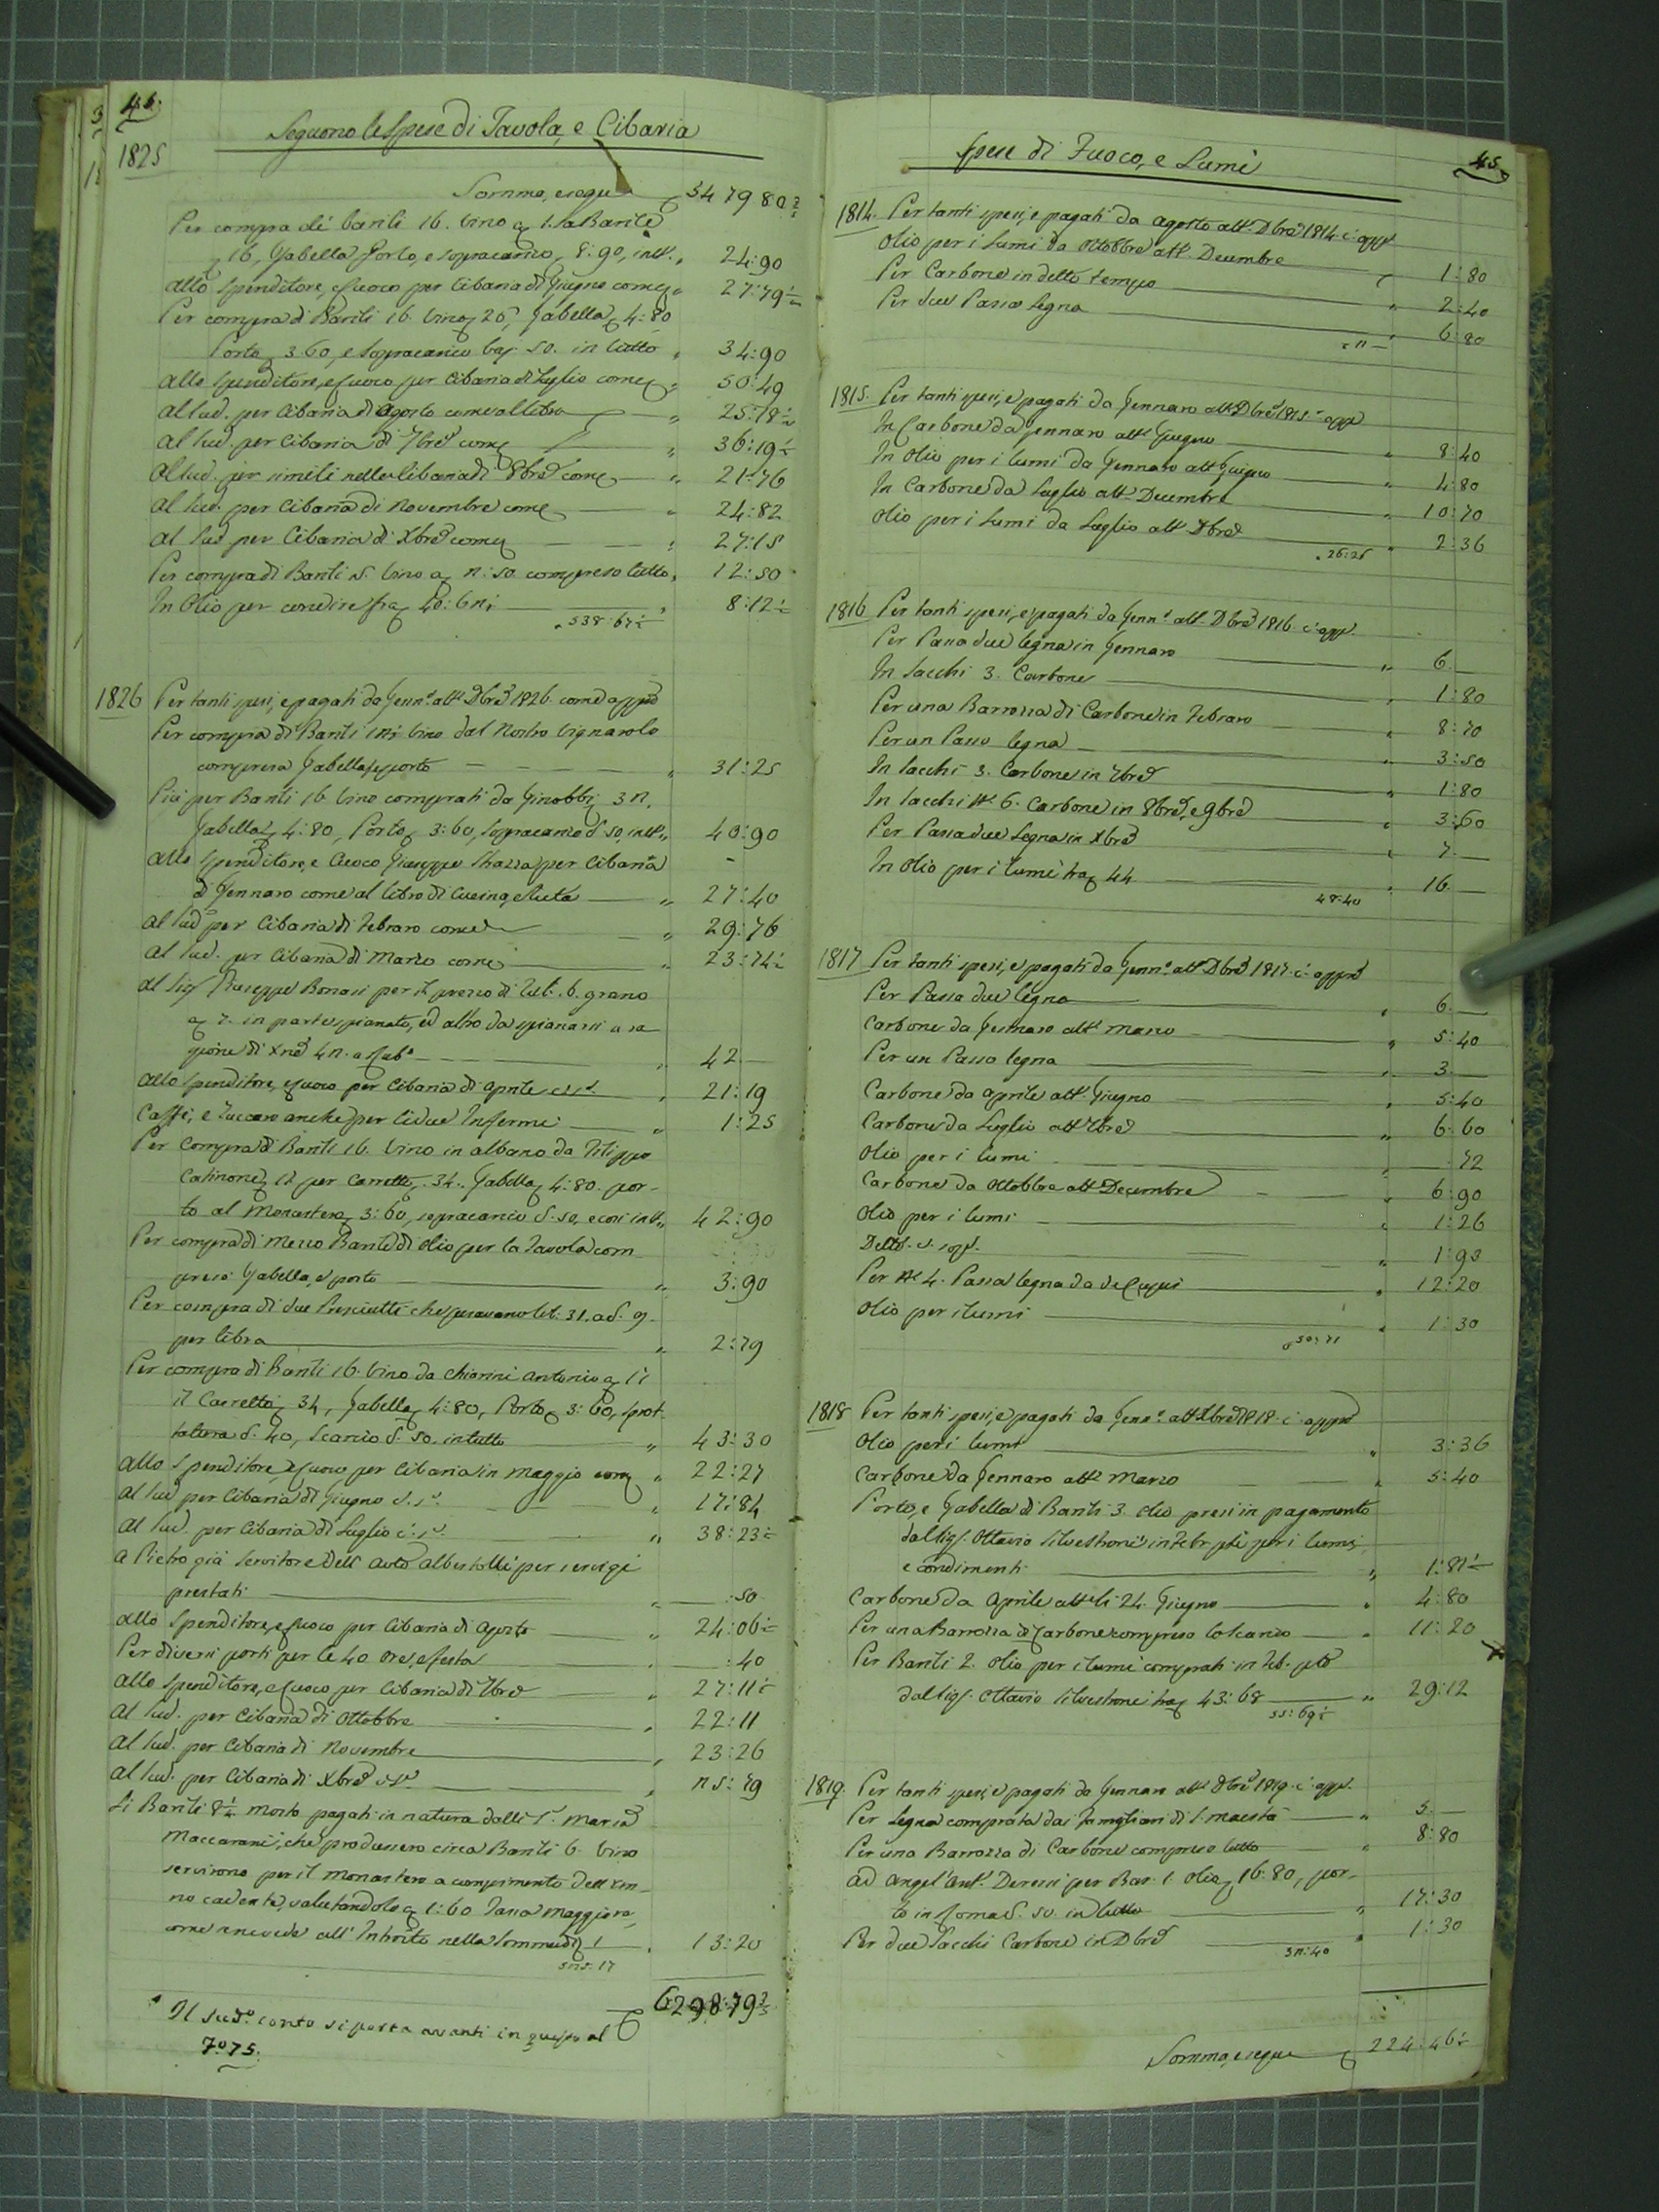 46.
Seguono le Spese di Tavola, e Cibaria
1825
Somma, e segue 5479 80
Per compra di barili 16. vino a 1. la Barile
16, Gabella, Porto, e sopracarico, 8:90, in tt. 24:90
allo Spenditore, e Cuoco per Cibaria di Giugno come 27:79½
Per compra di Barili 16. vino 26, Gabella 4:80
Porto 3.60, e Sopracarico baj. 50. in tutto 34:90
allo Spenditore, e Cuoco per Cibaria di Luglio come 50:49
al sud. per Cibaria di Agosto come al libro 25:78½
al sud. per Cibaria di 7bre come 36:19½
al sud. per simili nella Cibaria di 8bre come 21:76
al sud. per Cibaria di Novembre come 24:82
al sud. per Cibaria di Xbre come 27:15
Per compra di Barili 5. vino a 11:50. compreso tutto 12:50
In Olio per condire 8:12½
538:67½
1826 Per tanti spesi, e pagati da Genn.o all' Dbre 1826. come app.o
Per compra di Barili vino dal Nostro Vignarolo
compresa Gabella, e porto 31:25
Più per Barili 16 vino comprati da Ginobbi
Gabella 4:80, Porto 3:60, Sopracarico 50, in tt. 40:90
allo Spenditore, e Cuoco Giuseppe per Cibaria
di Gennaro come al libro di Cucina 27:40
al sud. per Cibaria di Febraro come 29:76
al sud. per Cibaria di Marzo come 23:74½
al Sig. Giuseppe Bonasi per il prezzo di Rub. 6. grano
a 7. in parte spianato, ed altro da spianarsi a ra-
gione di 42
allo Spenditore, e Cuoco per Cibaria di Aprile 21:19
Caffè, e Zuccaro anche per li due Infermi 1:25
Per compra di Barili 16. vino in albano da Filippo
per Carretto 34. Gabella 4:80. por-
to al Monastero 3:60, sopracarico 50, e così in tt. 42:90
Per compra di Mezzo Barile di olio per la Tavola com
preso Gabella, e porto 3:90
Per compra di due Presciutti che pesavano lib. 31. a 9.
per libra 2:79
Per compra di Barili 16. vino da Chiarini Antonio a
il Carretto 34, Gabella 4:80, Porto 3:60,
40, Scarico 50. in tutto 43:30
allo Spenditore, e Cuoco per Cibaria in Maggio come 22:27
al sud. per Cibaria di Giugno 17:84
al sud. per Cibaria di Luglio 38:23½
a Pietro già Servitore dell' per servigi
prestati :50
allo Spenditore, e Cuoco per Cibaria di Agosto 24:06½
Per diversi porti per le 40 ore, e festa :40
allo Spenditore, e Cuoco per Cibaria di 7bre 27:11½
al sud. per Cibaria di Ottobbre 22:11
al sud. per Cibaria di Novembre 23:26
al sud. per Cibaria di Xbre
Li Barili 8½ Mosto pagati in natura dalli
Maccarani, che produssero circa Barili 6. vino
servirono per il Monastero a compimento dell'an-
no cadente, valutandolo 1:60
come rincontro all' Introito nella Somma di 13:20
6298:79
Il Sud.o conto si porta avanti in questo al
Fo. 75.
Spese di Fuoco, e Lumi
45.
1814. Per tanti spesi, e pagati da Agosto all' Dbre 1814. c. app.
Olio per i Lumi da Ottobbre all' Decembre 1:80
Per Carbone in detto tempo 2:40
Per due Passa Legna 6:80
11
1815. Per tanti spesi, e pagati da Gennaro all' Dbre 1815. c. app.
In Carbone da Gennaro all' Giugno 8:40
In Olio per i lumi da Gennaro all' Giugno 4:80
In Carbone da Luglio all' Decembre 10:70
Olio per i Lumi da Luglio all' Dbre 2:36
26:26
1816 Per tanti spesi, e pagati da Genn.o all' Dbre 1816. c. app.
Per Passa due legna in Gennaro 6
In Sacchi 3. Carbone 1:80
Per una Barrozza di Carbone in Febraro 8:70
Per un Passo legna 3:50
In Sacchi 3. Carbone in 7bre 1:80
In Sacchi N. 6. Carbone in 8bre, e 9bre 3:60
Per Passa due Legna in Xbre 7
In Olio per i lumi 44 16
48:40
1817 Per tanti spesi, e pagati da Genn.o all' Dbre 1817. c. app.
Per Passa due legna 6
Carbone da Gennaro all' Marzo 5:40
Per un Passo legna 3
Carbone da Aprile all' Giugno 5:40
Carbone da Luglio all' 7bre 6:60
Olio per i lumi 72
Carbone da Ottobbre all' Decembre 6:90
Olio per i lumi 1:26
Detto 1:93
Per N. 4. Passa legna 12:20
Olio per i lumi 1:30
50:71
1818 Per tanti spesi, e pagati da Genn.o all' Xbre 1818. c. app.
Olio per i lumi 3:36
Carbone da Gennaro all' Marzo 5:40
Porto, e Gabella di Barili 3. olio presi in pagamento
dal Sig. Ottavio Silvestroni in Febr. per i lumi,
e condimenti 1:81½
Carbone da Aprile all' li 24. Giugno 4:80
Per una Barrozza di Carbone compreso lo scarico 11:20
Per Barili 2. olio per i lumi comprati in Feb.
dal Sig. Ottavio Silvestroni 43:68 29:12
55:69½
1819. Per tanti spesi, e pagati da Gennaro all' Dbre 1819. c. app.
Per Legna comprata dai Famigliari di S. Maestà 5
Per una Barrozza di Carbone compreso tutto 8:80
ad Angel' Ant. per Bar. 1. olio 16:80, por-
to in Roma 50. in tutto 17:30
Per due Sacchi Carbone in Dbre 1:30
Somma, e segue 224:46½